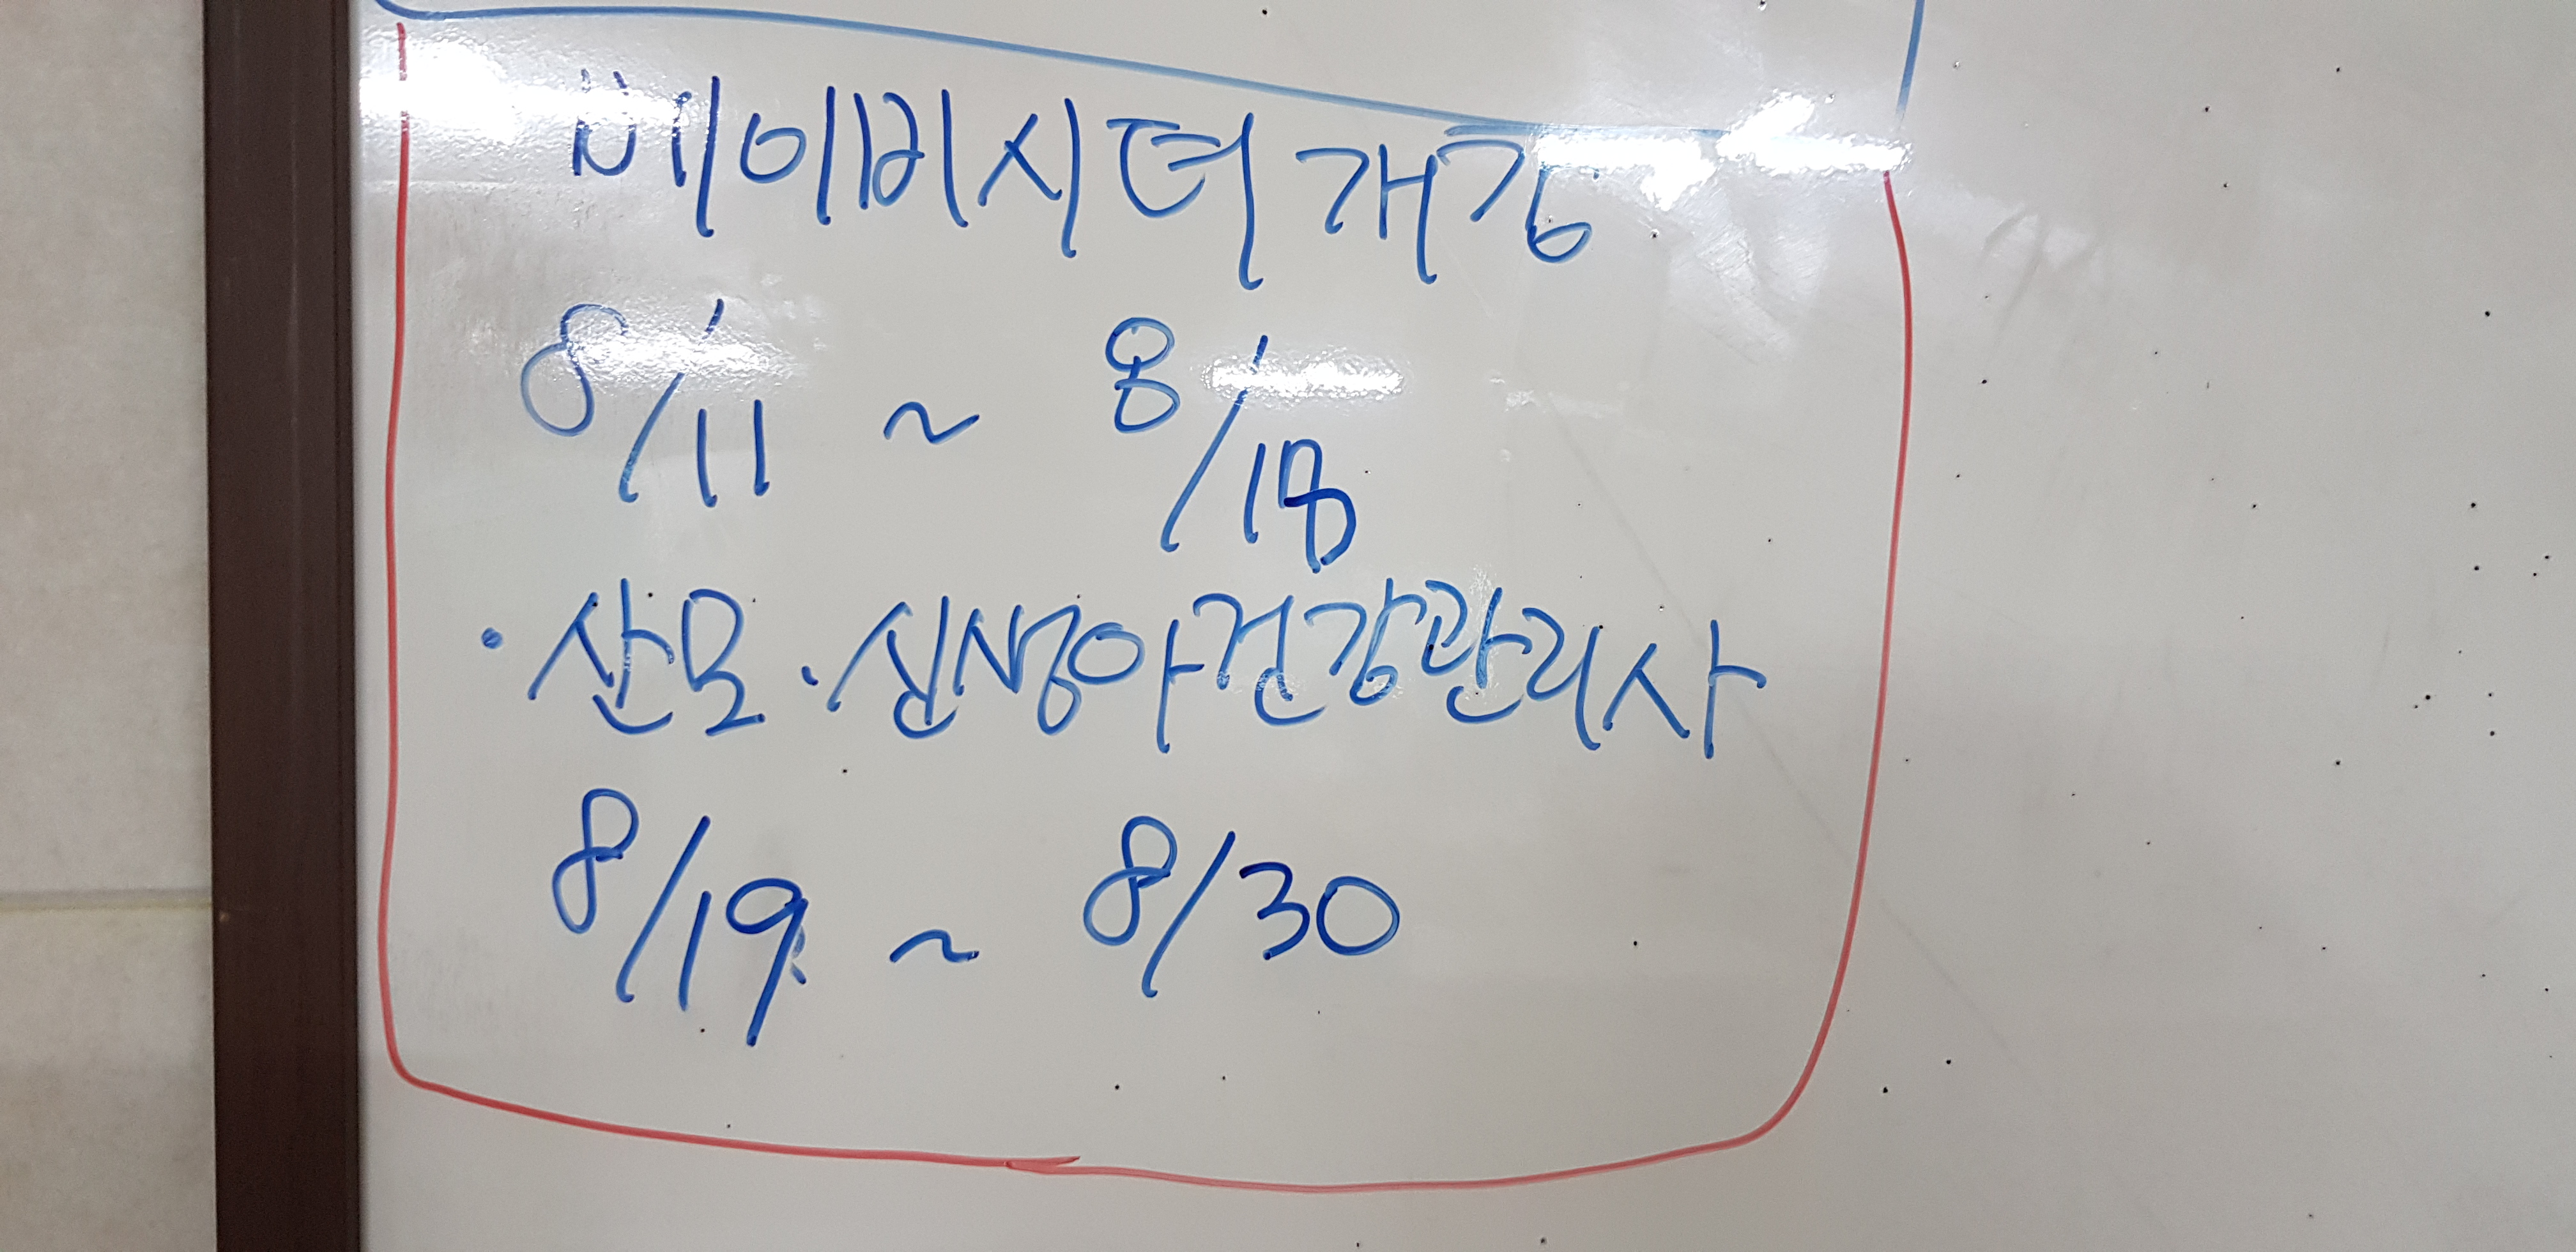 베이비시터 개강
8/11 ~ 8/18
· 산모 · 신생아건강관리사
8/19 ~ 8/30